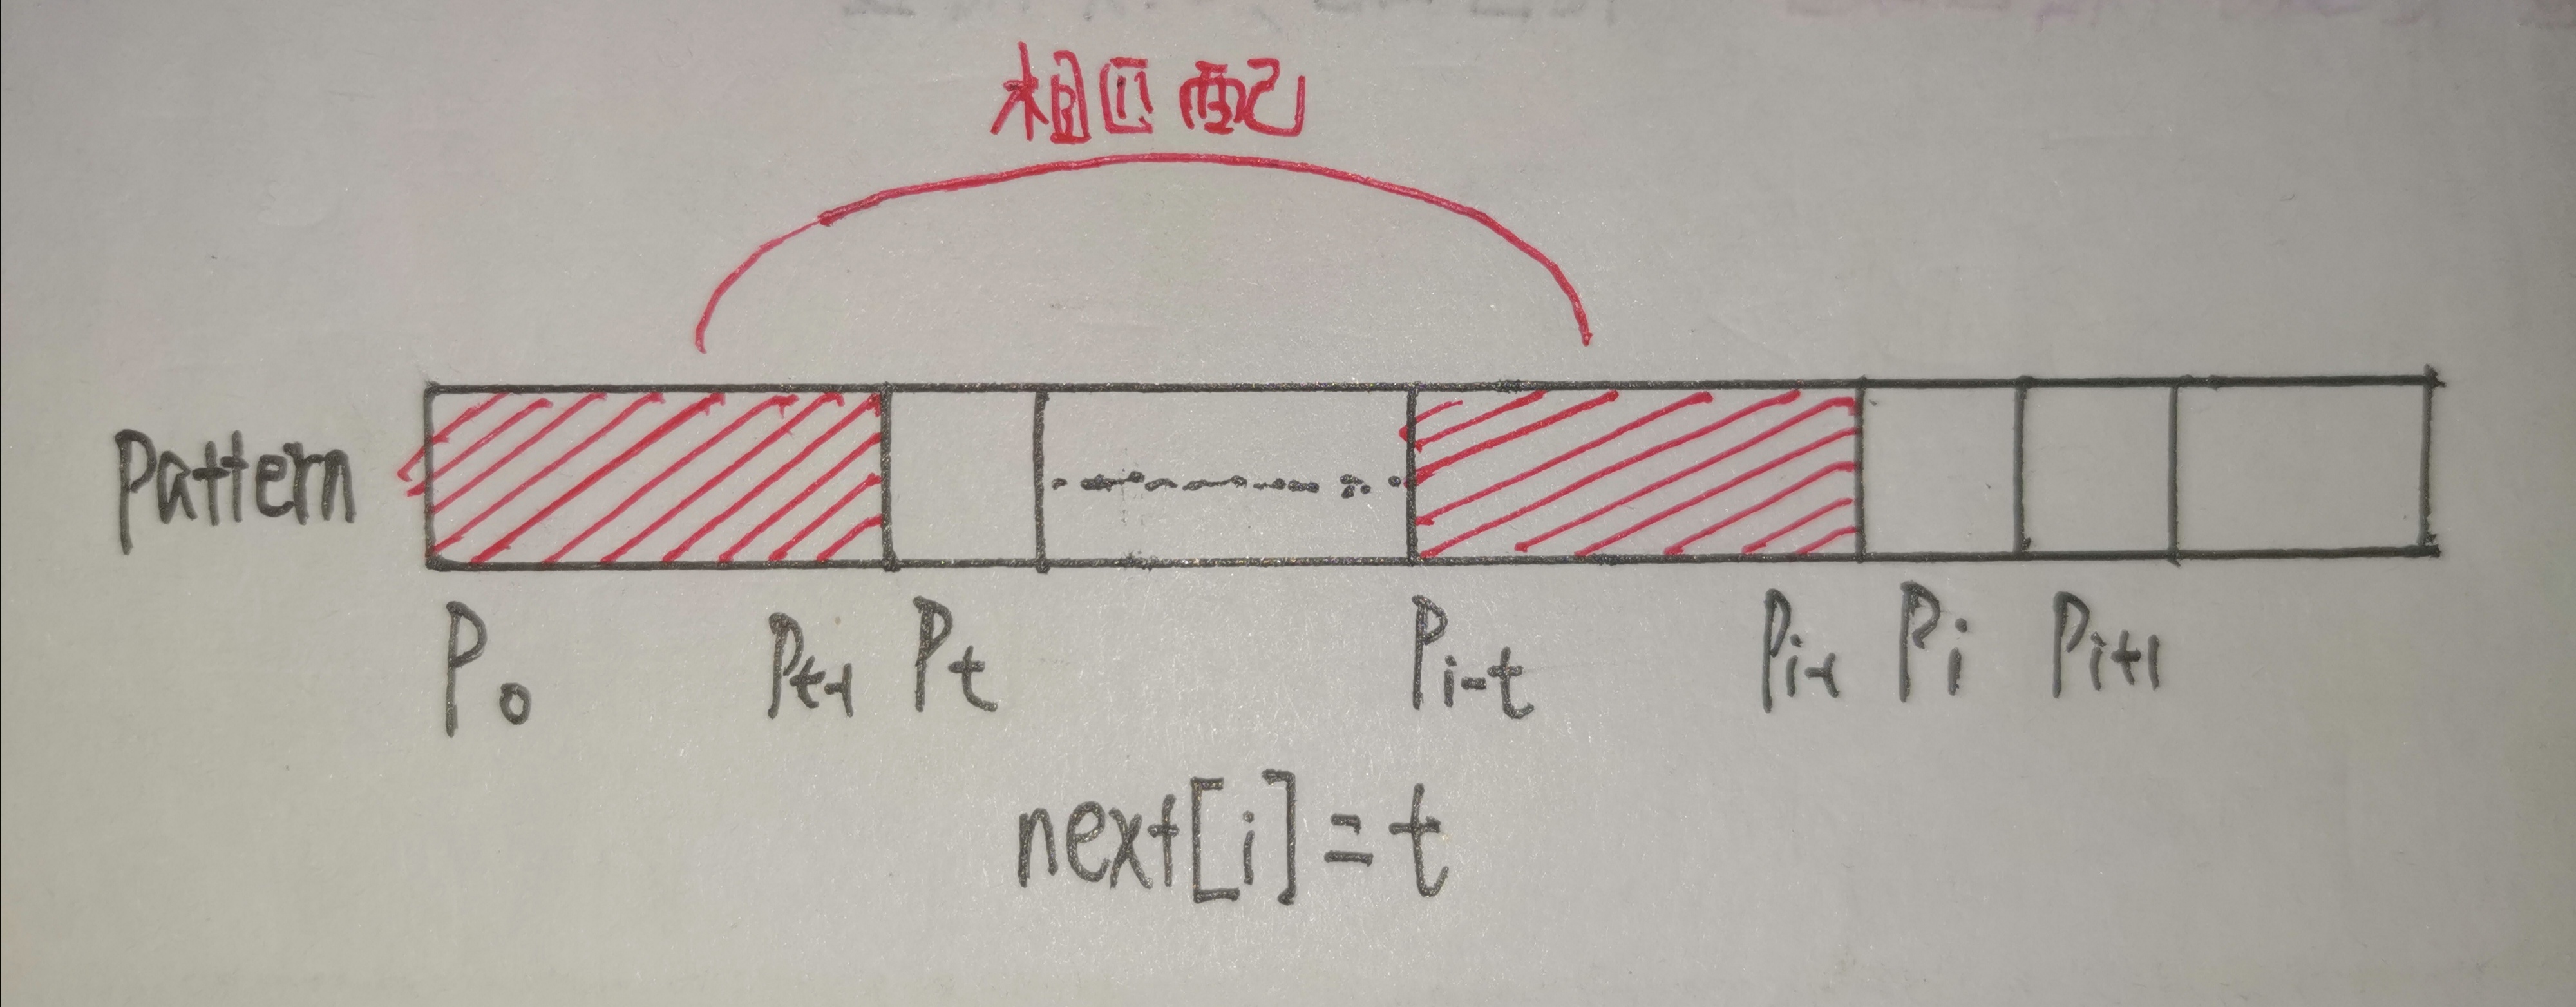 相匹配
pattern
P₀ Pₜ₋₁ Pₜ Pᵢ₋ₜ Pᵢ₋₁ Pᵢ Pᵢ₊₁
next[i]=t